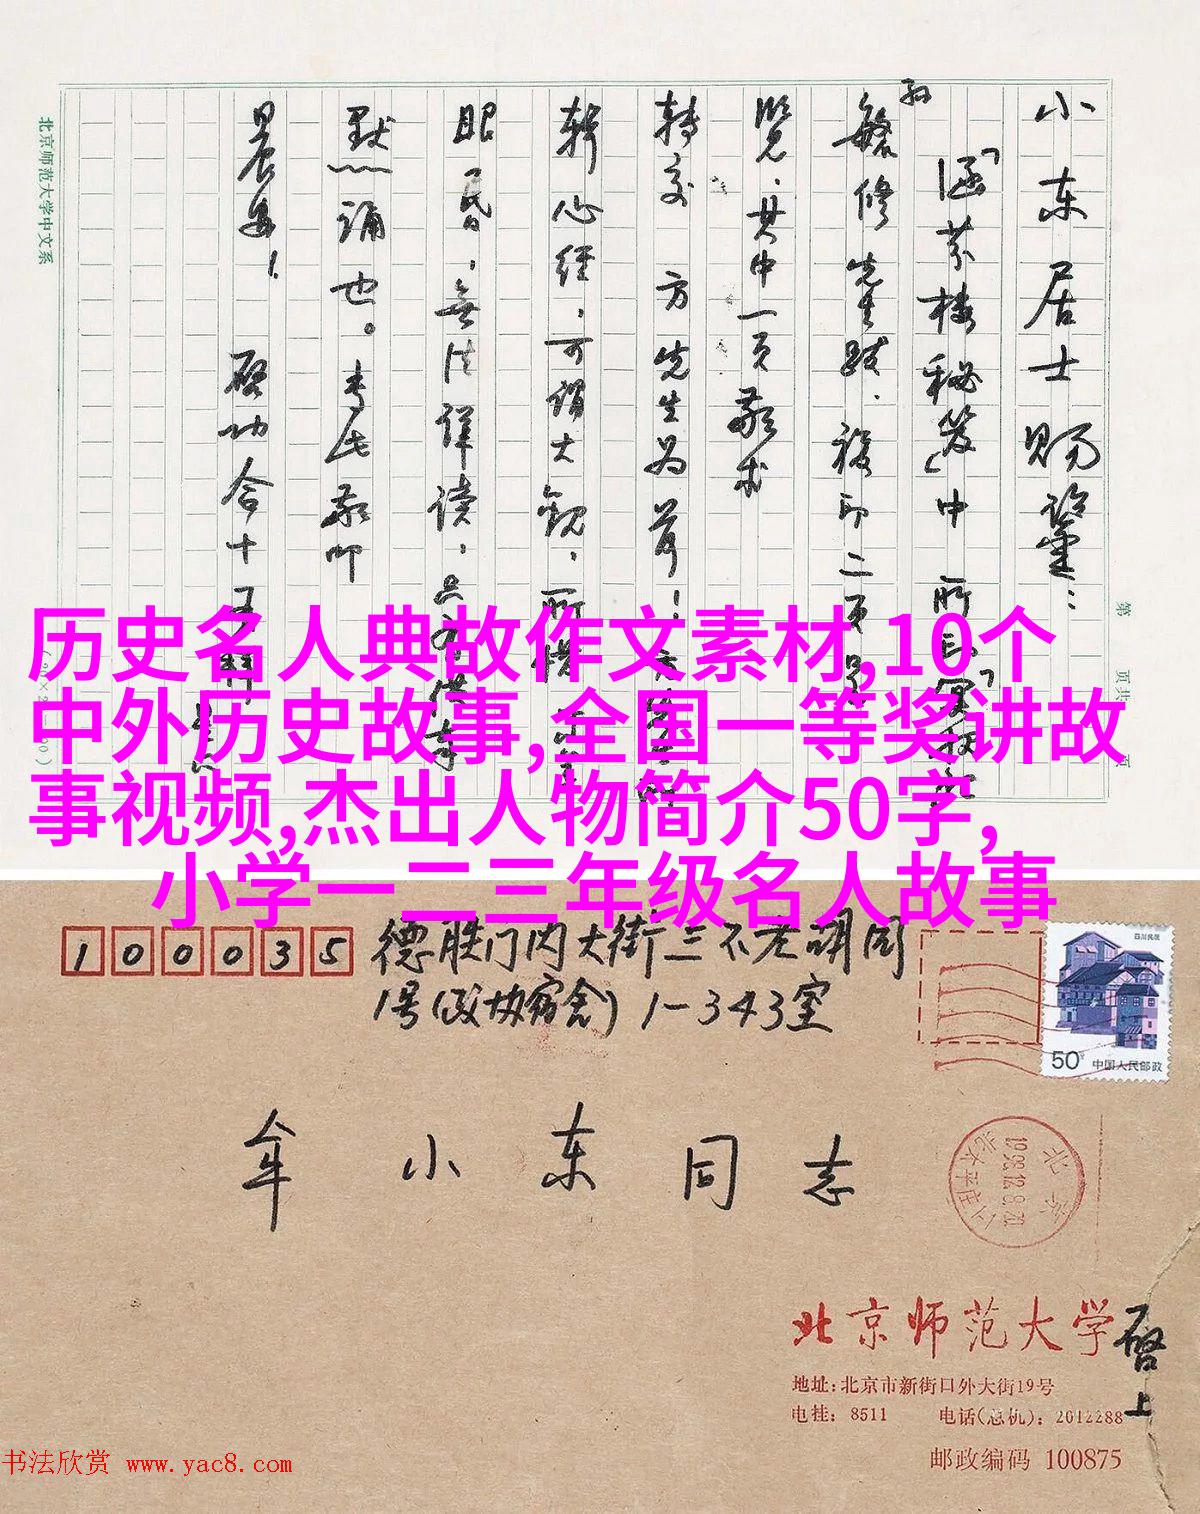 小东居士赐鉴：
「涵芬楼秘笈」中所
孙
毓修先生跋，複印二页
览，其中一页敬求
转交 方先生为荷！
辑心经，可谓大观，所惜
眼昏，無法详读，只
默诵也。专此敬叩
晨安！ 启功 合十
北京师范大学中文系
第 页共 页
历史名人典故作文素材,10个
中外历史故事,全国一等奖讲故
事视频,杰出人物简介50字,
小学一二三年级名人故事
100035
德胜门内大街三不老胡同
1号(政协宿舍) 1-343室
四川民居
50分
中国人民邮政
牟小东同志
北京
1998.12.8.20
北京师范大学
启上
地址:北京市新街口外大街19号
电挂: 8511 电话(总机): 2012288
邮政编码 100875
书法欣赏 www.yac8.com